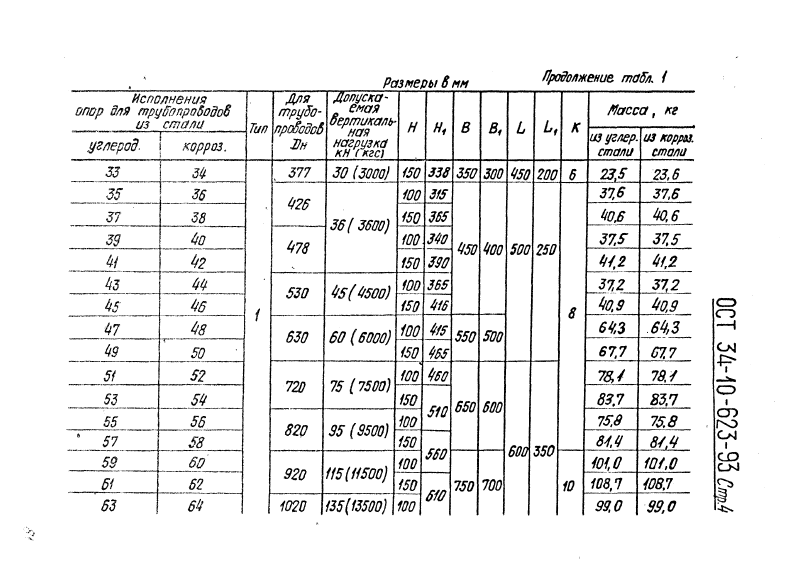 Размеры в мм
Продолжение табл. 1
Исполнения опор для трубопроводов из стали | Тип | Для трубопроводов Dн | Допускаемая вертикальная нагрузка кН (кгс) | H | H₁ | B | B₁ | L | L₁ | K | Масса, кг
углерод. | корроз. | из углер. стали | из корроз. стали
33 | 34 | 1 | 377 | 30 (3000) | 150 | 338 | 350 | 300 | 450 | 200 | 6 | 23,5 | 23,6
35 | 36 | 426 | 36 (3600) | 100 | 315 | 450 | 400 | 500 | 250 | 8 | 37,6 | 37,6
37 | 38 | 150 | 365 | 40,6 | 40,6
39 | 40 | 478 | 100 | 340 | 37,5 | 37,5
41 | 42 | 150 | 390 | 41,2 | 41,2
43 | 44 | 530 | 45 (4500) | 100 | 365 | 37,2 | 37,2
45 | 46 | 150 | 416 | 40,9 | 40,9
47 | 48 | 630 | 60 (6000) | 100 | 415 | 550 | 500 | 64,3 | 64,3
49 | 50 | 150 | 465 | 67,7 | 67,7
51 | 52 | 720 | 75 (7500) | 100 | 460 | 650 | 600 | 600 | 350 | 78,1 | 78,1
53 | 54 | 150 | 510 | 83,7 | 83,7
55 | 56 | 820 | 95 (9500) | 100 | 75,8 | 75,8
57 | 58 | 150 | 560 | 81,4 | 81,4
59 | 60 | 920 | 115 (11500) | 100 | 750 | 700 | 10 | 101,0 | 101,0
61 | 62 | 150 | 610 | 108,7 | 108,7
63 | 64 | 1020 | 135 (13500) | 100 | 99,0 | 99,0
ОСТ 34-10-623-93 Стр.4